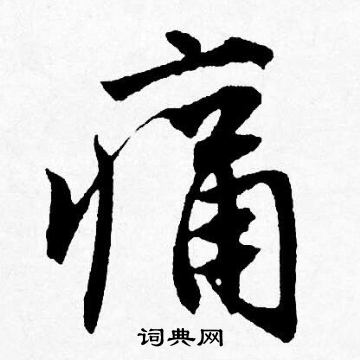 痛
词典网